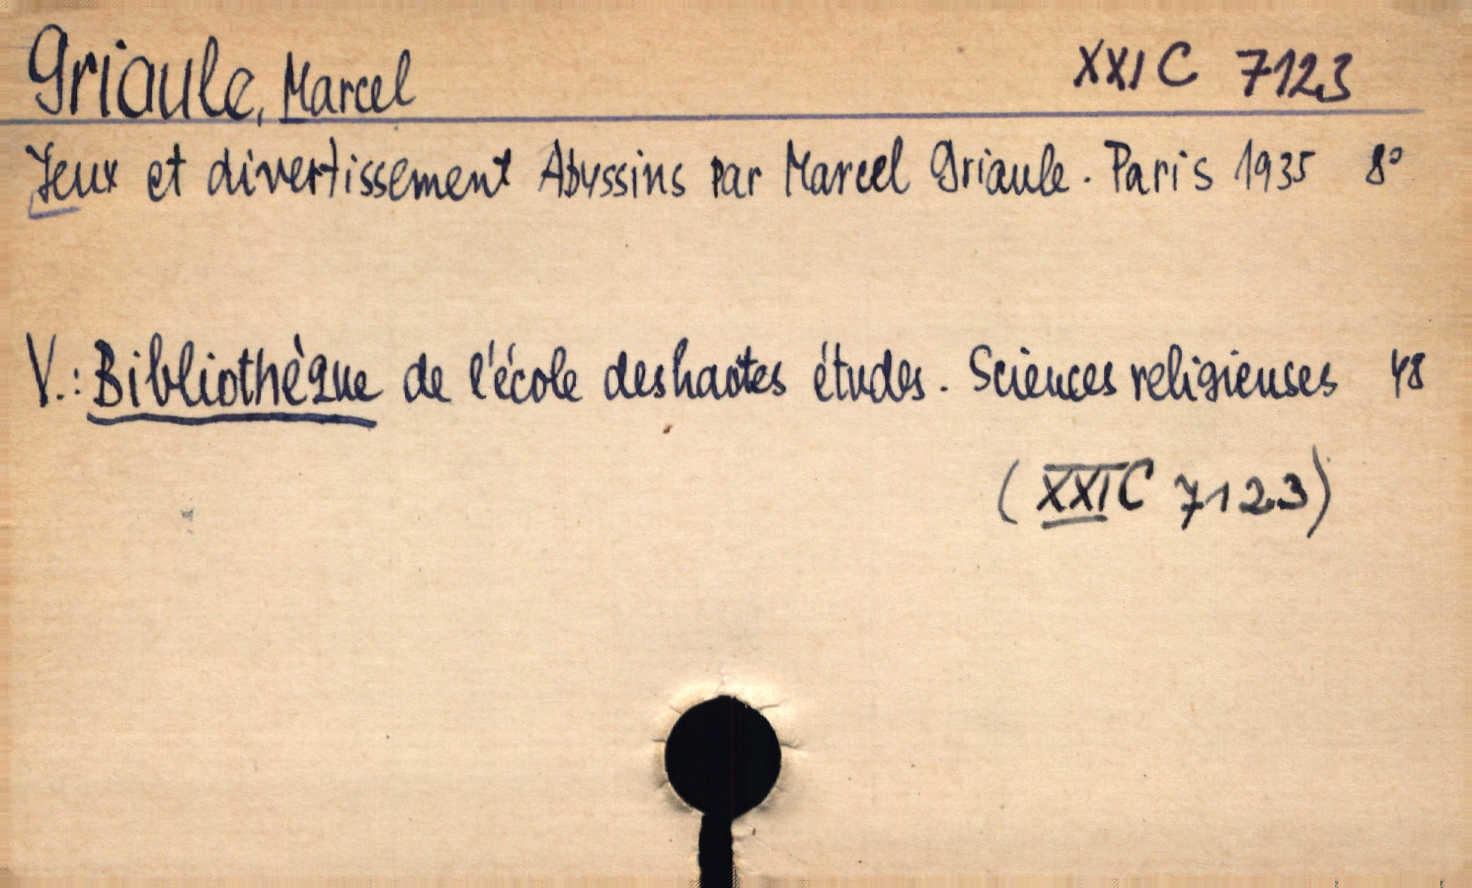 Griaule, Marcel XXI C 7123
Jeux et divertissement Abyssins par Marcel Griaule. Paris 1935 8°
V.: Bibliothèque de l'école des hautes études. Sciences religieuses 48
(XXI C 7123)